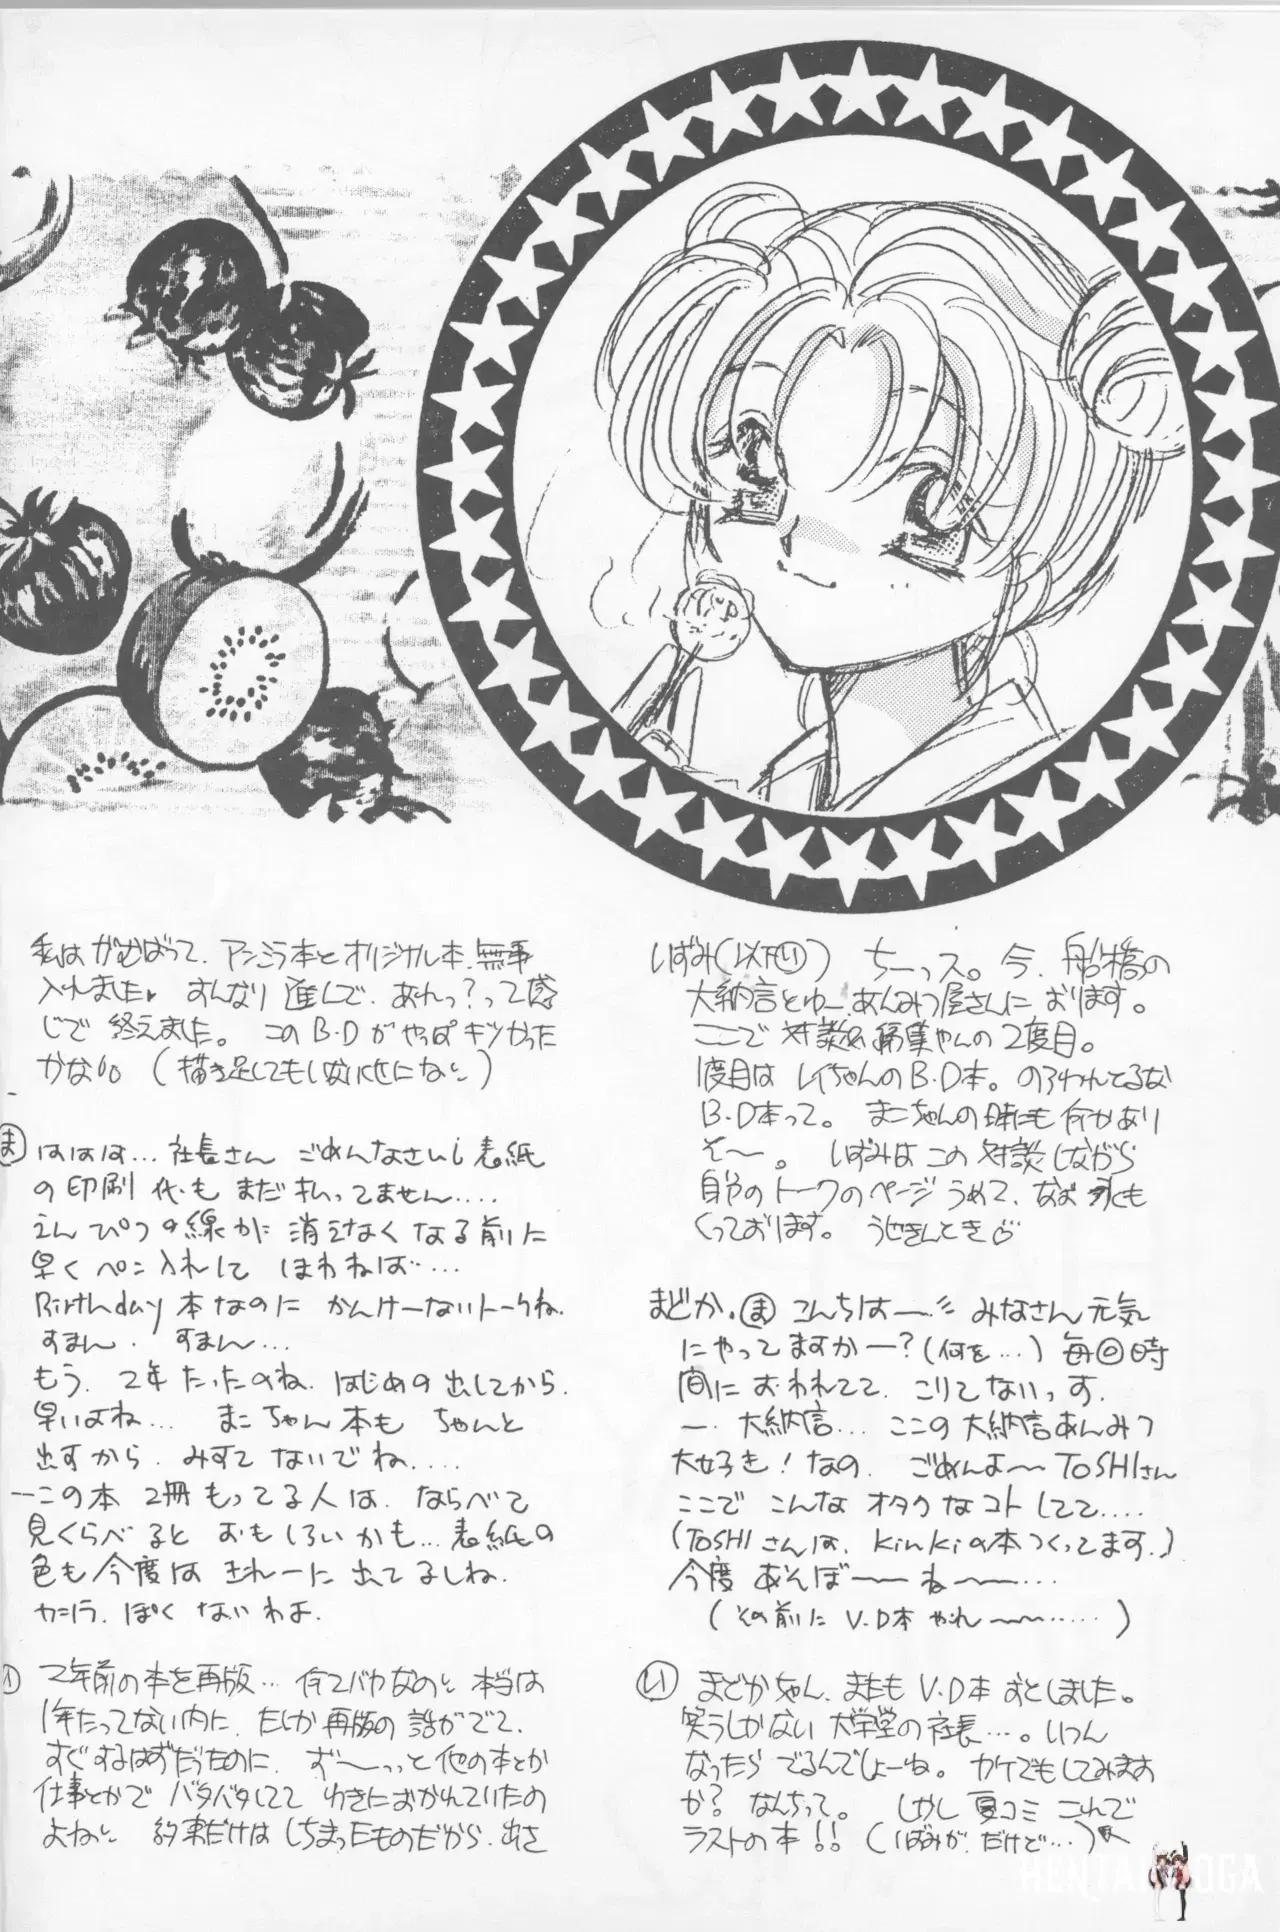 いずみ(以下い) ちーっス。今、船橋の
大納言とゆーあんみつ屋さんにおります。
ここで対談&編集やんの2度目。
1度目はレイちゃんのB.D本。のろわれてるな
B.D本って。まこちゃんの時にも何かあり
そ〜。いずみはこの対談しながら
自分のトークのページうめて、なお氷も
くっております。うじきんとき♡
まどか.ま こんちはー〃みなさん元気
にやってますかー?(何を…)毎回時
間におわれてて、こりてないっす.
一. 大納言... ここの大納言あんみつ
大好き!なの. ごめんよ〜TOSHIさん
ここでこんなオタクなコトしてて....
(TOSHIさんは、KinKiの本つくってます.)
今度あそぼ〜〜ね〜〜...
(その前にV.D本やれ〜〜......)
い まどかちゃん、またもV.D本おとしました。
笑うしかない大学堂の社長…。いつん
なったらでるんでしょーね。カケでもしてみます
か?なんちって。しかし夏コミこれで
ラストの本!!(いずみが、だけど…)
私はがんばって、アンミラ本とオリジナル本、無事
入れました♥ すんなり進んで、あれっ?って感
じで終えました。このB.Dがやっぱキツかった
かな。(描き足してもしないくせになー)
ま ははは...社長さん ごめんなさいし表紙
の印刷代も まだ払ってません....
えんぴつの線が消えなくなる前に
早くペン入れしてほわねば……
Birthday本なのに かんけーないトークね.
すまん. すまん...
もう. 2年たったのね. はじめの出してから.
早いよね... まこちゃん本も ちゃんと
出すから. みすてないでね....
一この本2冊もってる人は. ならべて
見くらべると おもしろいかも... 表紙の
色も今度は きれーに出てるしね.
カラ. ぽくないわよ.
い 2年前の本を再版... 何てバカなのー 本当は
1年たってない内に、たしか再版の話がでて、
すぐするはずだったのに、ず〜っっと他の本とか
仕事とかでバタバタしてて わきにおかれていたの
よねー 約束だけはしちまったものだから、出さ
HENTAI OGA